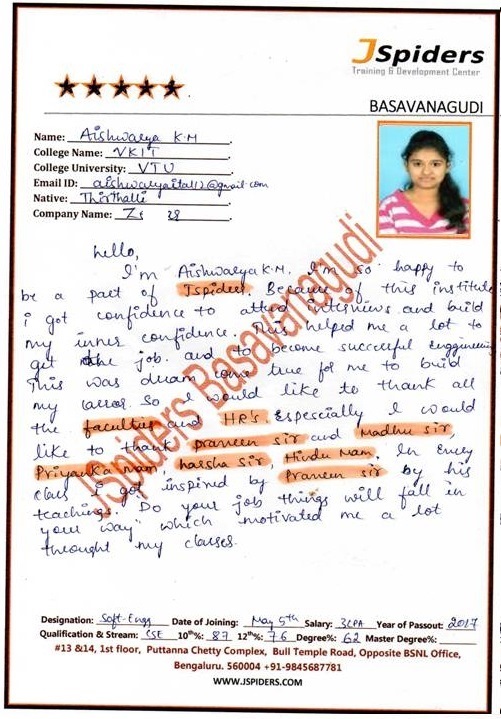 JSpiders
Training & Development Center
BASAVANAGUDI
Name: Aishwarya K.M
College Name: VKIT
College University: VTU
Email ID: aishwaryaital12@gmail.com
Native: Thirthalli
Company Name:
hello,
I'm Aishwarya K.M. I'm so happy to
be a part of Jspiders. Because of this institute
i got confidence to attend interviews and build
my inner confidence. This helped me a lot to
get the job. and to become successful enggineering
This was dream come true for me to build
my career. So I would like to thank all
the faculties and HR's. Especially I would
like to thank praneen sir and Madhu sir,
Priyanka mam, harsha sir, Hindu Mam. In every
class i got inspired by Praneen sir by his
teachings. Do your job things will fall in
your way" which motivated me a lot
throught my classes.
JSpiders Basavanagudi
Designation: Soft-Engg Date of Joining: May 5th Salary: 3LPA Year of Passout: 2017
Qualification & Stream: CSE 10th%: 87 12th%: 76 Degree%: 62 Master Degree%:
#13 &14, 1st floor, Puttanna Chetty Complex, Bull Temple Road, Opposite BSNL Office,
Bengaluru. 560004 +91-9845687781
WWW.JSPIDERS.COM